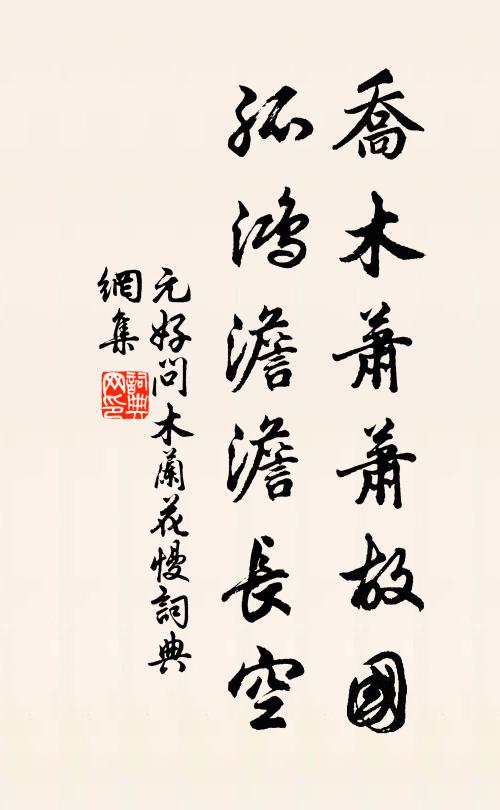 喬木蕭蕭故國
孤鴻澹澹長空
元好问木蘭花慢詞典
網集
詞典
网印